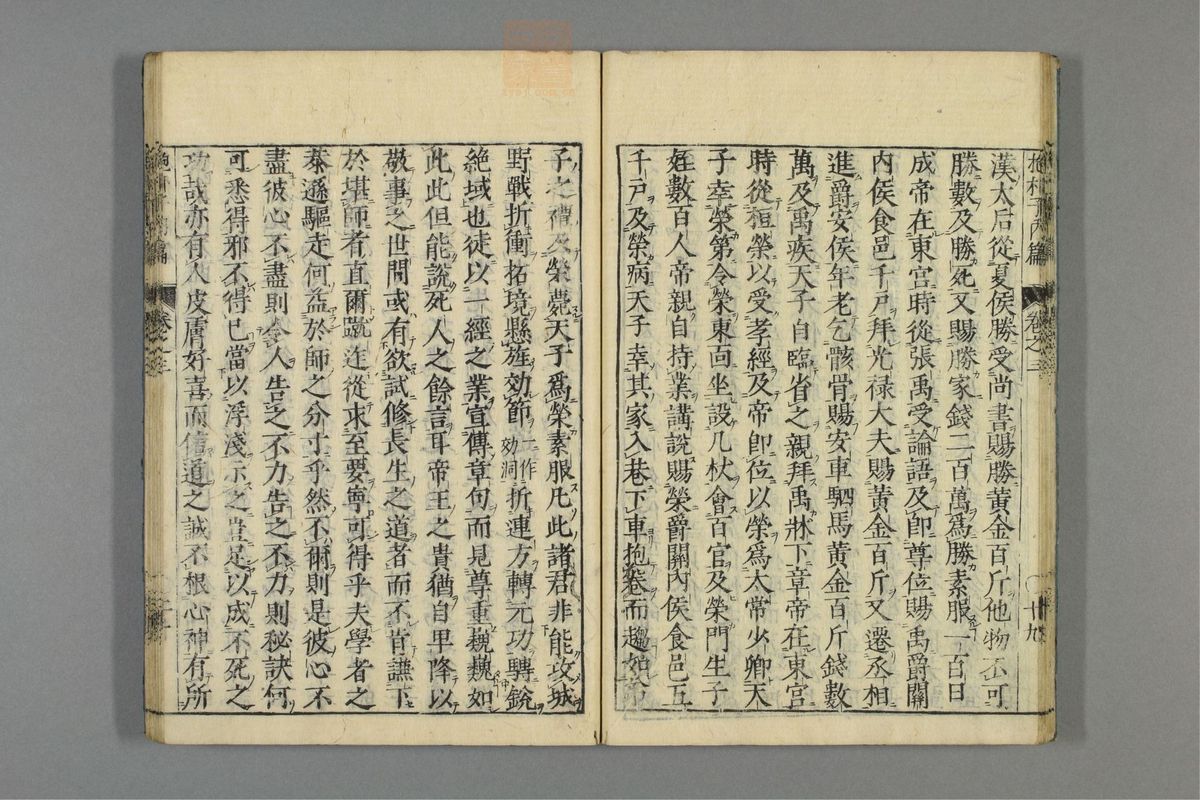 抱朴子內篇 卷之三 廿九
漢太后從夏侯勝受尚書賜勝黃金百斤他物不可
勝數及勝死又賜勝家錢二百萬爲勝素服一百日
成帝在東宮時從張禹受論語及卽尊位賜禹爵關
内侯食邑千戸拜光禄大夫賜黃金百斤又遷丞相
進爵安侯年老乞骸骨賜安車駟馬黃金百斤錢數
萬及禹疾天子自臨省之親拜禹牀下章帝在東宮
時從桓榮以受孝經及帝卽位以榮爲太常少卿天
子幸榮第令榮東面坐設几杖會百官及榮門生子
姪數百人帝親自持業講說賜榮爵關內侯食邑五
千戸及榮病天子幸其家入巷下車抱卷而趨如弟
子之禮及榮薨天子爲榮素服凡此諸君非能攻城
野戰折衝拓境懸旌効節一作効洞折連方轉元功騁銳
絶域也徒以一經之業宣傳章句而見尊重巍巍如
此此但能說死人之餘言耳帝王之貴猶自卑降以
敬事之世間或有欲試修長生之道者而不肯謙下
於堪師者直爾蹴迮從求至要寧可得乎夫學者之
恭遜驅走何益於師之分寸乎然不爾則是彼心不
盡彼心不盡則令人告之不力告之不力則秘訣何
可悉得邪不得已當以浮淺示之豈足以成不死之
功哉亦有人皮膚好喜而信道之誠不根心神有所